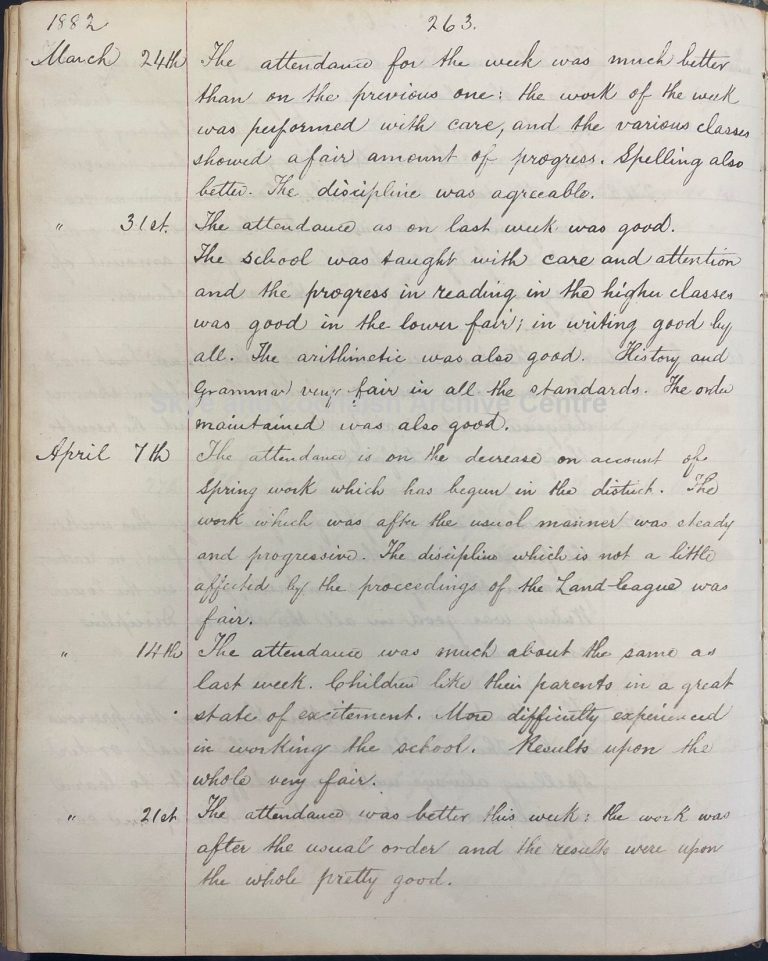 1882
263.
March 24th The attendance for the week was much better
than on the previous one: the work of the week
was performed with care, and the various classes
showed a fair amount of progress. Spelling also
better. The discipline was agreeable.
" 31st. The attendance as on last week was good.
The school was taught with care and attention
and the progress in reading in the higher classes
was good in the lower fair; in writing good by
all. The arithmetic was also good. History and
Grammar very fair in all the standards. The order
Skye and Lochalsh Archive Centre
maintained was also good.
April 7th The attendance is on the decrease on account of
Spring work which has begun in the district. The
work which was after the usual manner was steady
and progressive. The discipline which is not a little
affected by the proceedings of the Land-league was
fair.
" 14th The attendance was much about the same as
last week. Children like their parents in a great
state of excitement. More difficulty experienced
in working the school. Results upon the
whole very fair.
" 21st The attendance was better this week: the work was
after the usual order and the results were upon
the whole pretty good.